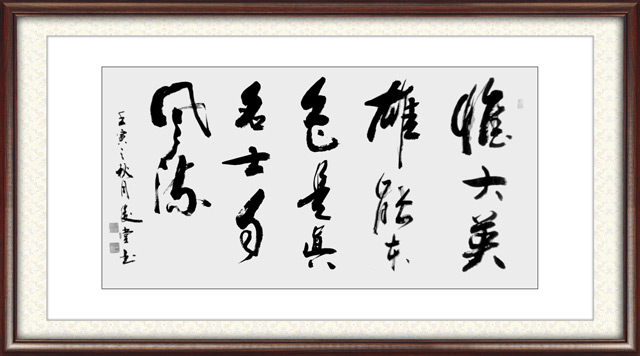 惟大英
雄能本
色是真
名士自
风流
壬寅之秋月堂书